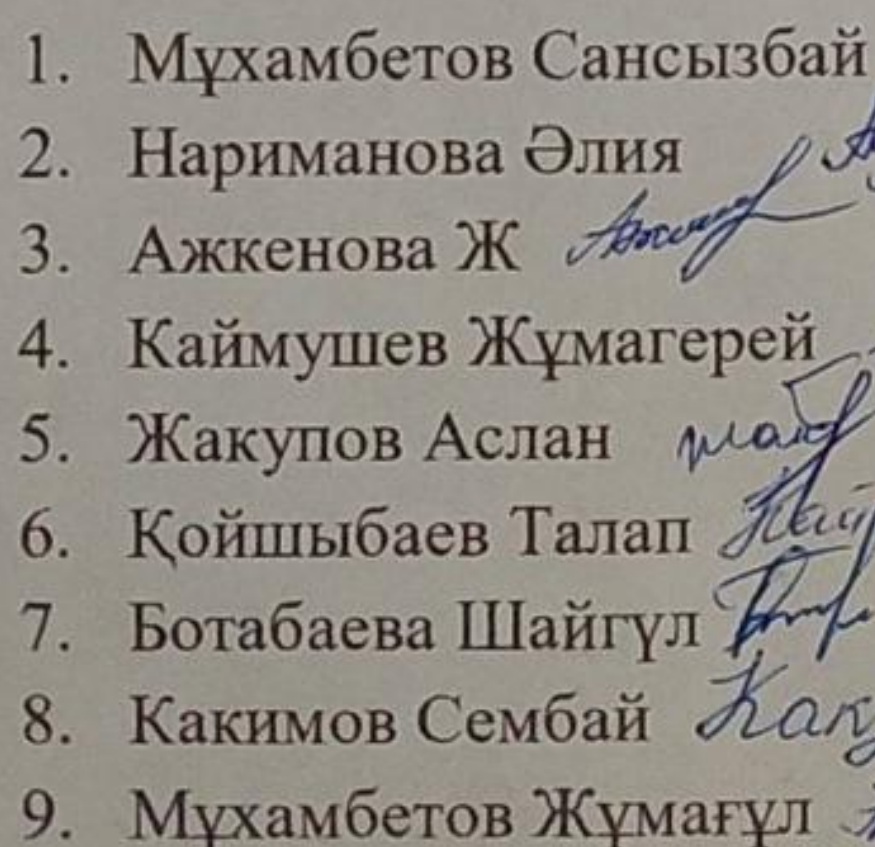 1. Мұхамбетов Сансызбай
2. Нариманова Әлия
3. Ажкенова Ж
4. Каймушев Жұмагерей
5. Жакупов Аслан
6. Қойшыбаев Талап
7. Ботабаева Шайгүл
8. Какимов Сембай
9. Мұхамбетов Жұмағұл